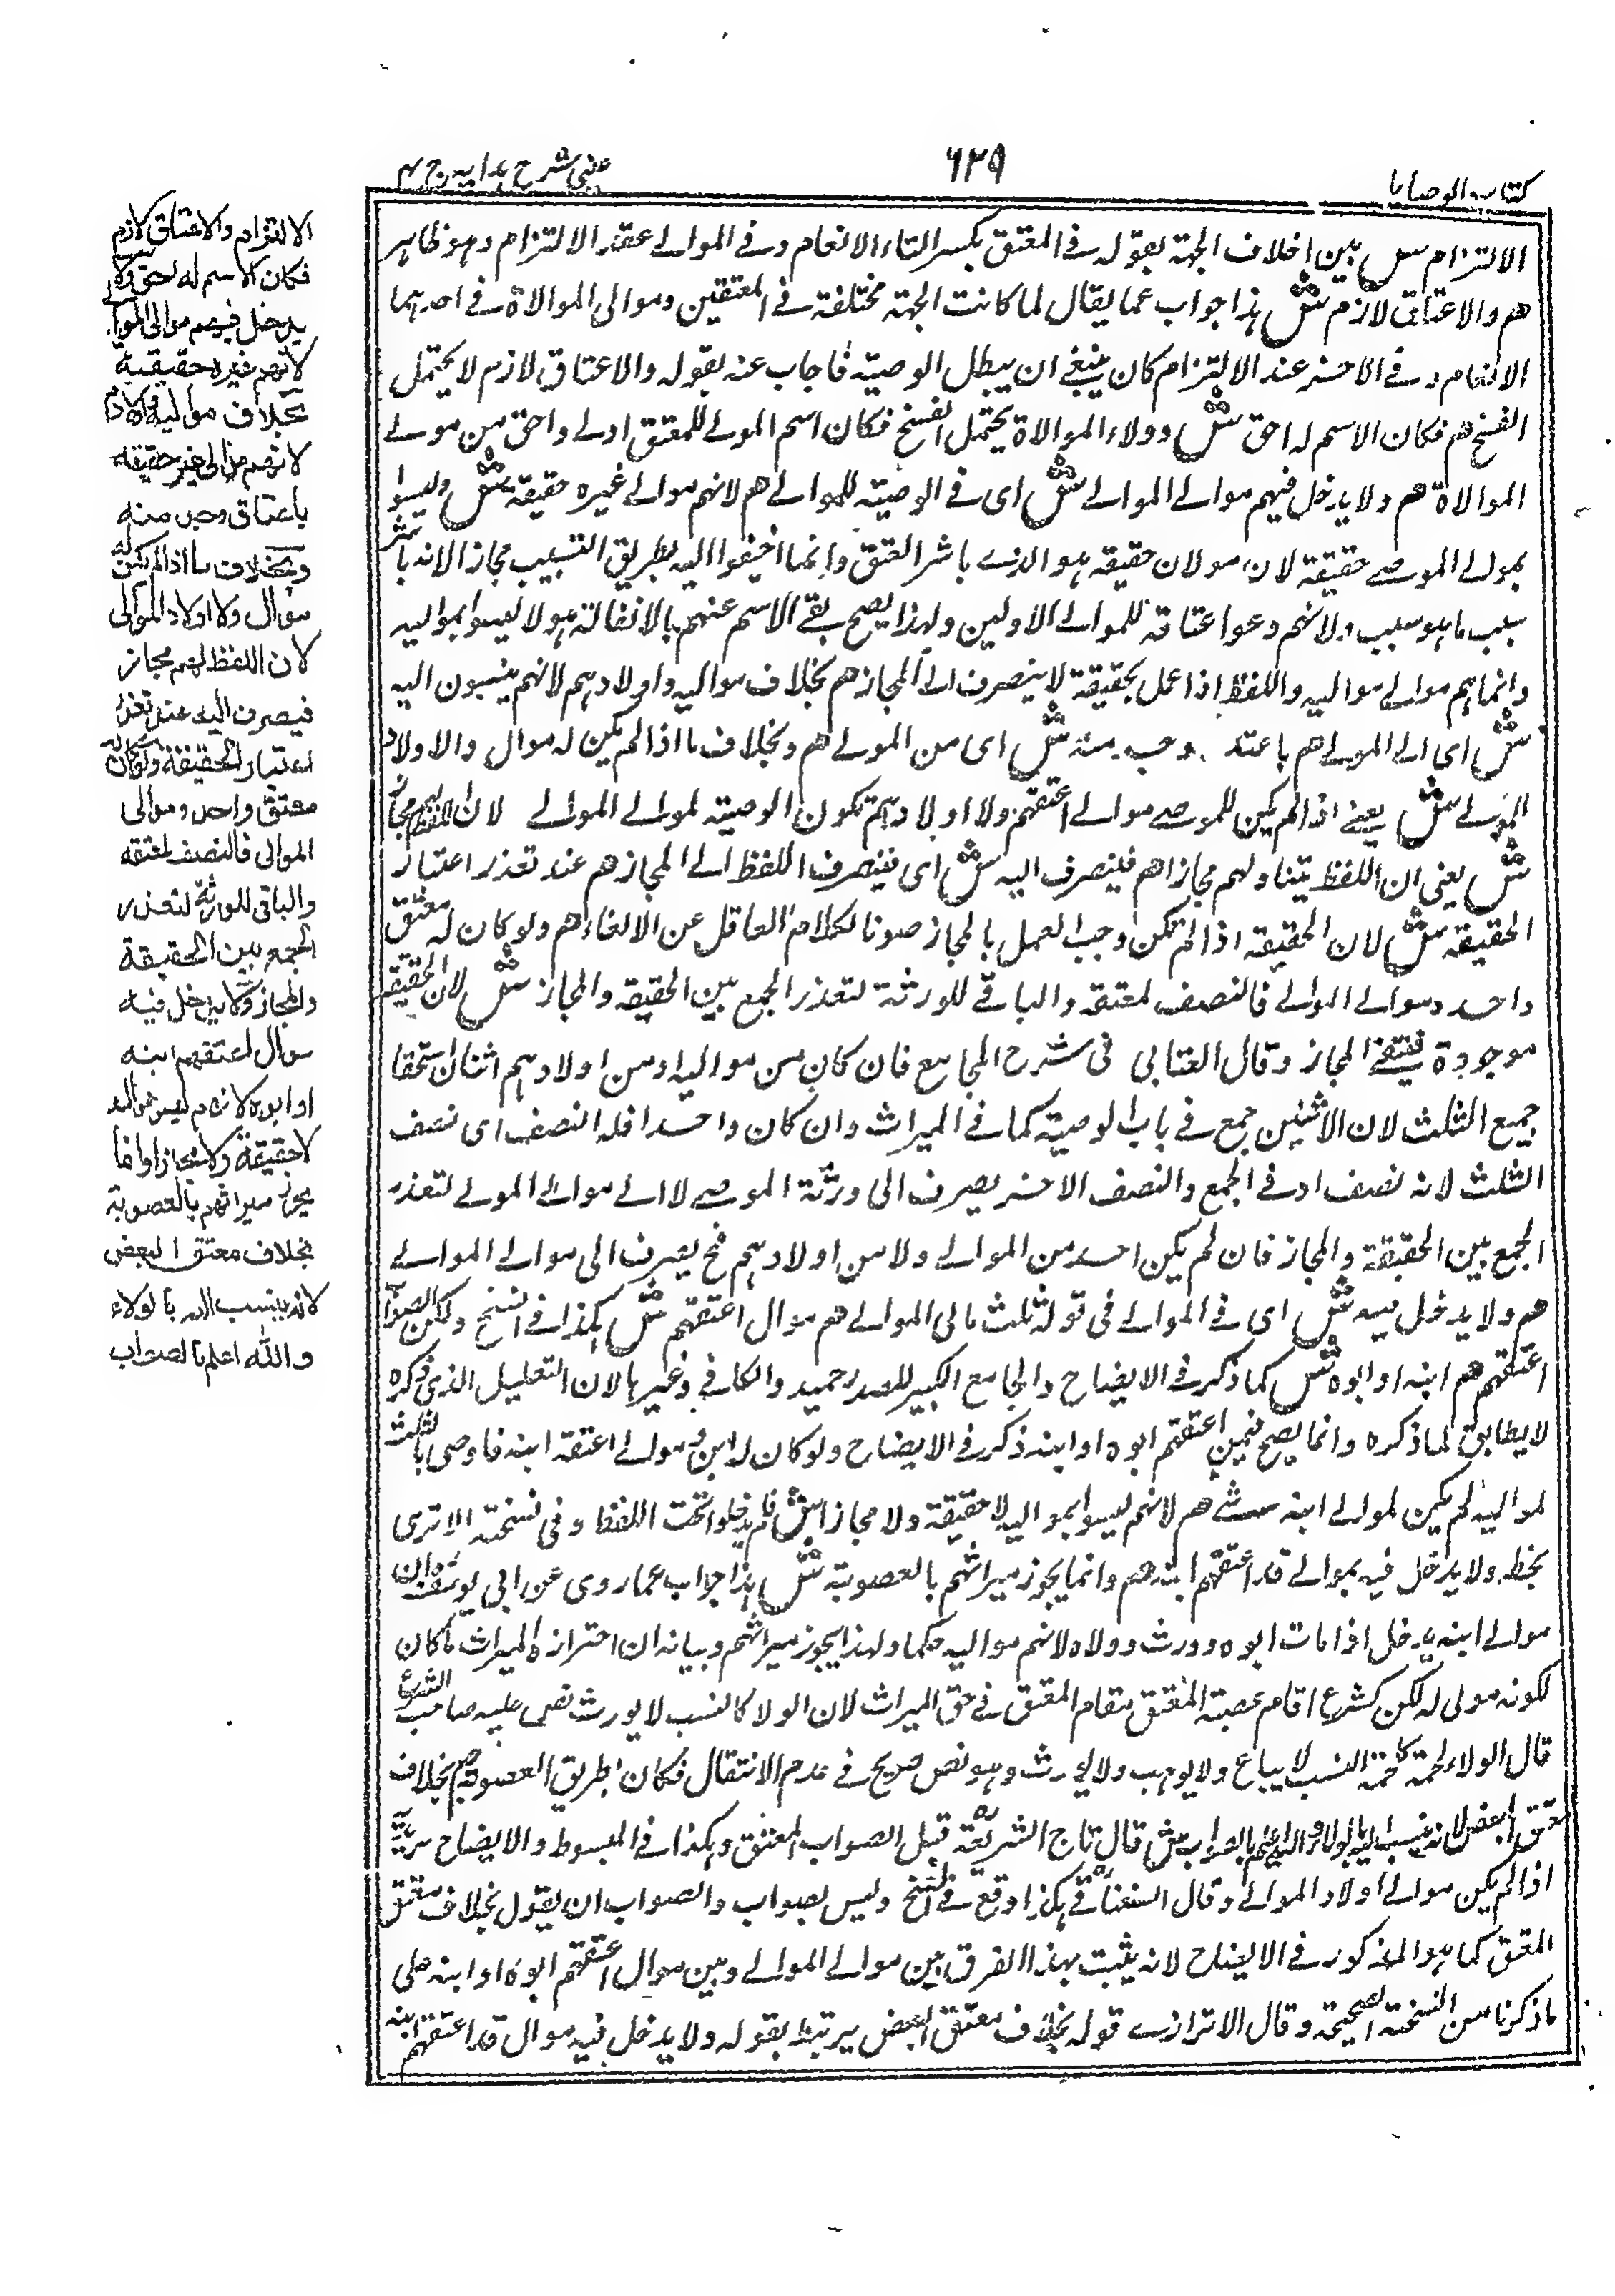 كتاب الوصايا
٦٣٩
عينى شرح هدايه ج ٤
الالتزام ش بين اختلاف الجهة بقوله فى المعتق بكسر التاء الانعام و فى الموالے عقد الالتزام وهو ظاهر
هم والاعتاق لازم ش هذا جواب عما يقال لما كانت الجهة مختلفة فے المعتقين وموالى الموالاة فے احدهما
الانعام و فے الاخر عند الالتزام كان ينبغے ان يبطل الوصية فاجاب عنه بقوله والاعتاق لازم لا يحتمل
الفسخ هم فكان الاسم له احق ش وولاء الموالاة يحتمل الفسخ فكان اسم المولے للمعتق اولے واحق من مولے
الموالاة هم ولا يدخل فيهم موالے الموالے ش اى فے الوصية للموالے هم لانهم موالے غيره حقيقة ش وليسوا
بموالے الموصے حقيقة لان مولان حقيقة هو الذے باشر العتق وانما اضيفوا اليه بطريق التسبيب مجازا لانه باشر
سبب ما هو سبب ولانهم دعوا عتاقة للموالے الاولين ولهذا يصح بقے الاسم عنهم بالانفالة هولا ليسوا بمواليه
وانما هم موالے مواليه واللفظ اذا عمل بحقيقة لا ينصرف الے المجاز هم بخلاف مواليه واولادهم لانهم ينسبون اليه
ش اى الے المولے هم باعتد وجب منه ش اى من المولے هم وبخلاف ما اذا لم يكن له موال والاولاد
المولے ش يعنے اذا لم يكن للموصے موالے اعتقهم ولا اولادهم تكون الوصية لموالے الموالے لان اللفظ لهم مجاز
ش يعنى ان اللفظ يتناولهم مجازا هم فينصرف اليه ش اى فينصرف اللفظ الے المجاز هم عند تعذر اعتبار
الحقيقة ش لان الحقيقة اذا لم تمكن وجب العمل بالمجاز صونا لكلام العاقل عن الالغاء هم ولو كان له معتق
واحد وموالے الموالے فالنصف لمعتقه والباقے للورثة لتعذر الجمع بين الحقيقة والمجاز ش لان الحقيقة
موجودة فينتفے المجاز وقال العتابى فى شرح الجامع فان كان من مواليه او من اولادهم اثنان استحقا
جميع الثلث لان الاثنين جمع فے باب الوصية كما فے الميراث وان كان واحدا فله النصف اى نصف
الثلث لانه نصف ادفے الجمع والنصف الاخر يصرف الى ورثة الموصے لا الے موالے المولے لتعذر
الجمع بين الحقيقة والمجاز فان لم يكن احد من الموالے ولا من اولادهم فح يصرف الى موالے الموالے
هم ولا يدخل فيه ش اى فے الموالے فى قوله ثلث مالى الموالے هم موال اعتقهم ش هكذا فے النسخ ولكن الصواب
اعتقهم هم ابنه او ابوه ش كما ذكر فى الايضاح والجامع الكبير للصدر حميد والكافے وغيرها لان التعليل الذى ذكره
لا يطابق لما ذكره وانما يصح فيمن اعتقهم ابوه او ابنه ذكر فى الايضاح ولو كان له ابن وموالے اعتقه ابنه فاوصى بالثلث
لمواليه لم يكن لموالے ابنه شے هم لانهم ليسوا بمواليه لا حقيقة ولا مجازا ش فلم يدخلوا تحت اللفظ وفى نسخته الاترى
بخط ولا يدخل فيه بموالے قد اعتقهم ابنه هم وانما يجوز ميراثهم بالعصوبة ش هذا جواب عما روى عن ابى يوسف ان
موالے ابنه يدخل اذا مات ابوه وورث وولاه لانهم مواليه حكما ولهذا يجوز ميراثهم وبيانه ان احترازه الميراث ما كان
لكونه مولى له لكن كشرع اقام عصبة المعتق مقام المعتق فے حق الميراث لان الولا كالنسب لا يورث نص عليه صاحب الشرع
قال الولاء لحمة كلحمة النسب لا يباع ولا يوهب ولا يورث وهو نص صريح فے عدم الانتقال فكان بطريق العصوبة هم بخلاف
معتق البعض لانه ينسب اليه بالولاء والله اعلم بالصواب ش قال تاج الشريعة قيل الصواب المعتق وهكذا فے المبسوط والايضاح
اذا لم يكن موالے اولاد الموالے وقال السغناقے هكذا وقع فے النسخ وليس بصواب والصواب ان يقول بخلاف معتق
المعتق كما هو المذكور فے الايضاح لانه يثبت بهذا الفرق بين موالے الموالے وبين موال اعتقهم ابوه او ابنه على
ما ذكرنا من النسخة الصحيحة وقال الاترازے قوله بخلاف معتق البعض يرتبط بقوله ولا يدخل فيه موال قد اعتقهم ابنه
الالتزام والاعتاق لازم
فكان الاسم له احق ولا
يدخل فيهم موالى الموالى
لانهم غيره حقيقية
بخلاف مواليه واولادهم
لانهم موالى غير حقيقة
باعتاق وجد منه
وبخلاف ما اذا لم يكن له
موال ولا اولاد الموالى
لان اللفظ لهم مجاز
فيصرف اليه عند تعذر
اعتبار الحقيقة ولو كان له
معتق واحد وموالى
الموالى فالنصف لمعتقه
والباقى للورثة لتعذر
الجمع بين الحقيقة
والمجاز ولا يدخل فيه
موال اعتقهم ابنه
او ابوه لانهم ليس بمواليه
لا حقيقة ولا مجازا وانما
يجوز ميراثهم بالعصوبة
بخلاف معتق البعض
لانه ينسب اليه بالولاء
والله اعلم بالصواب